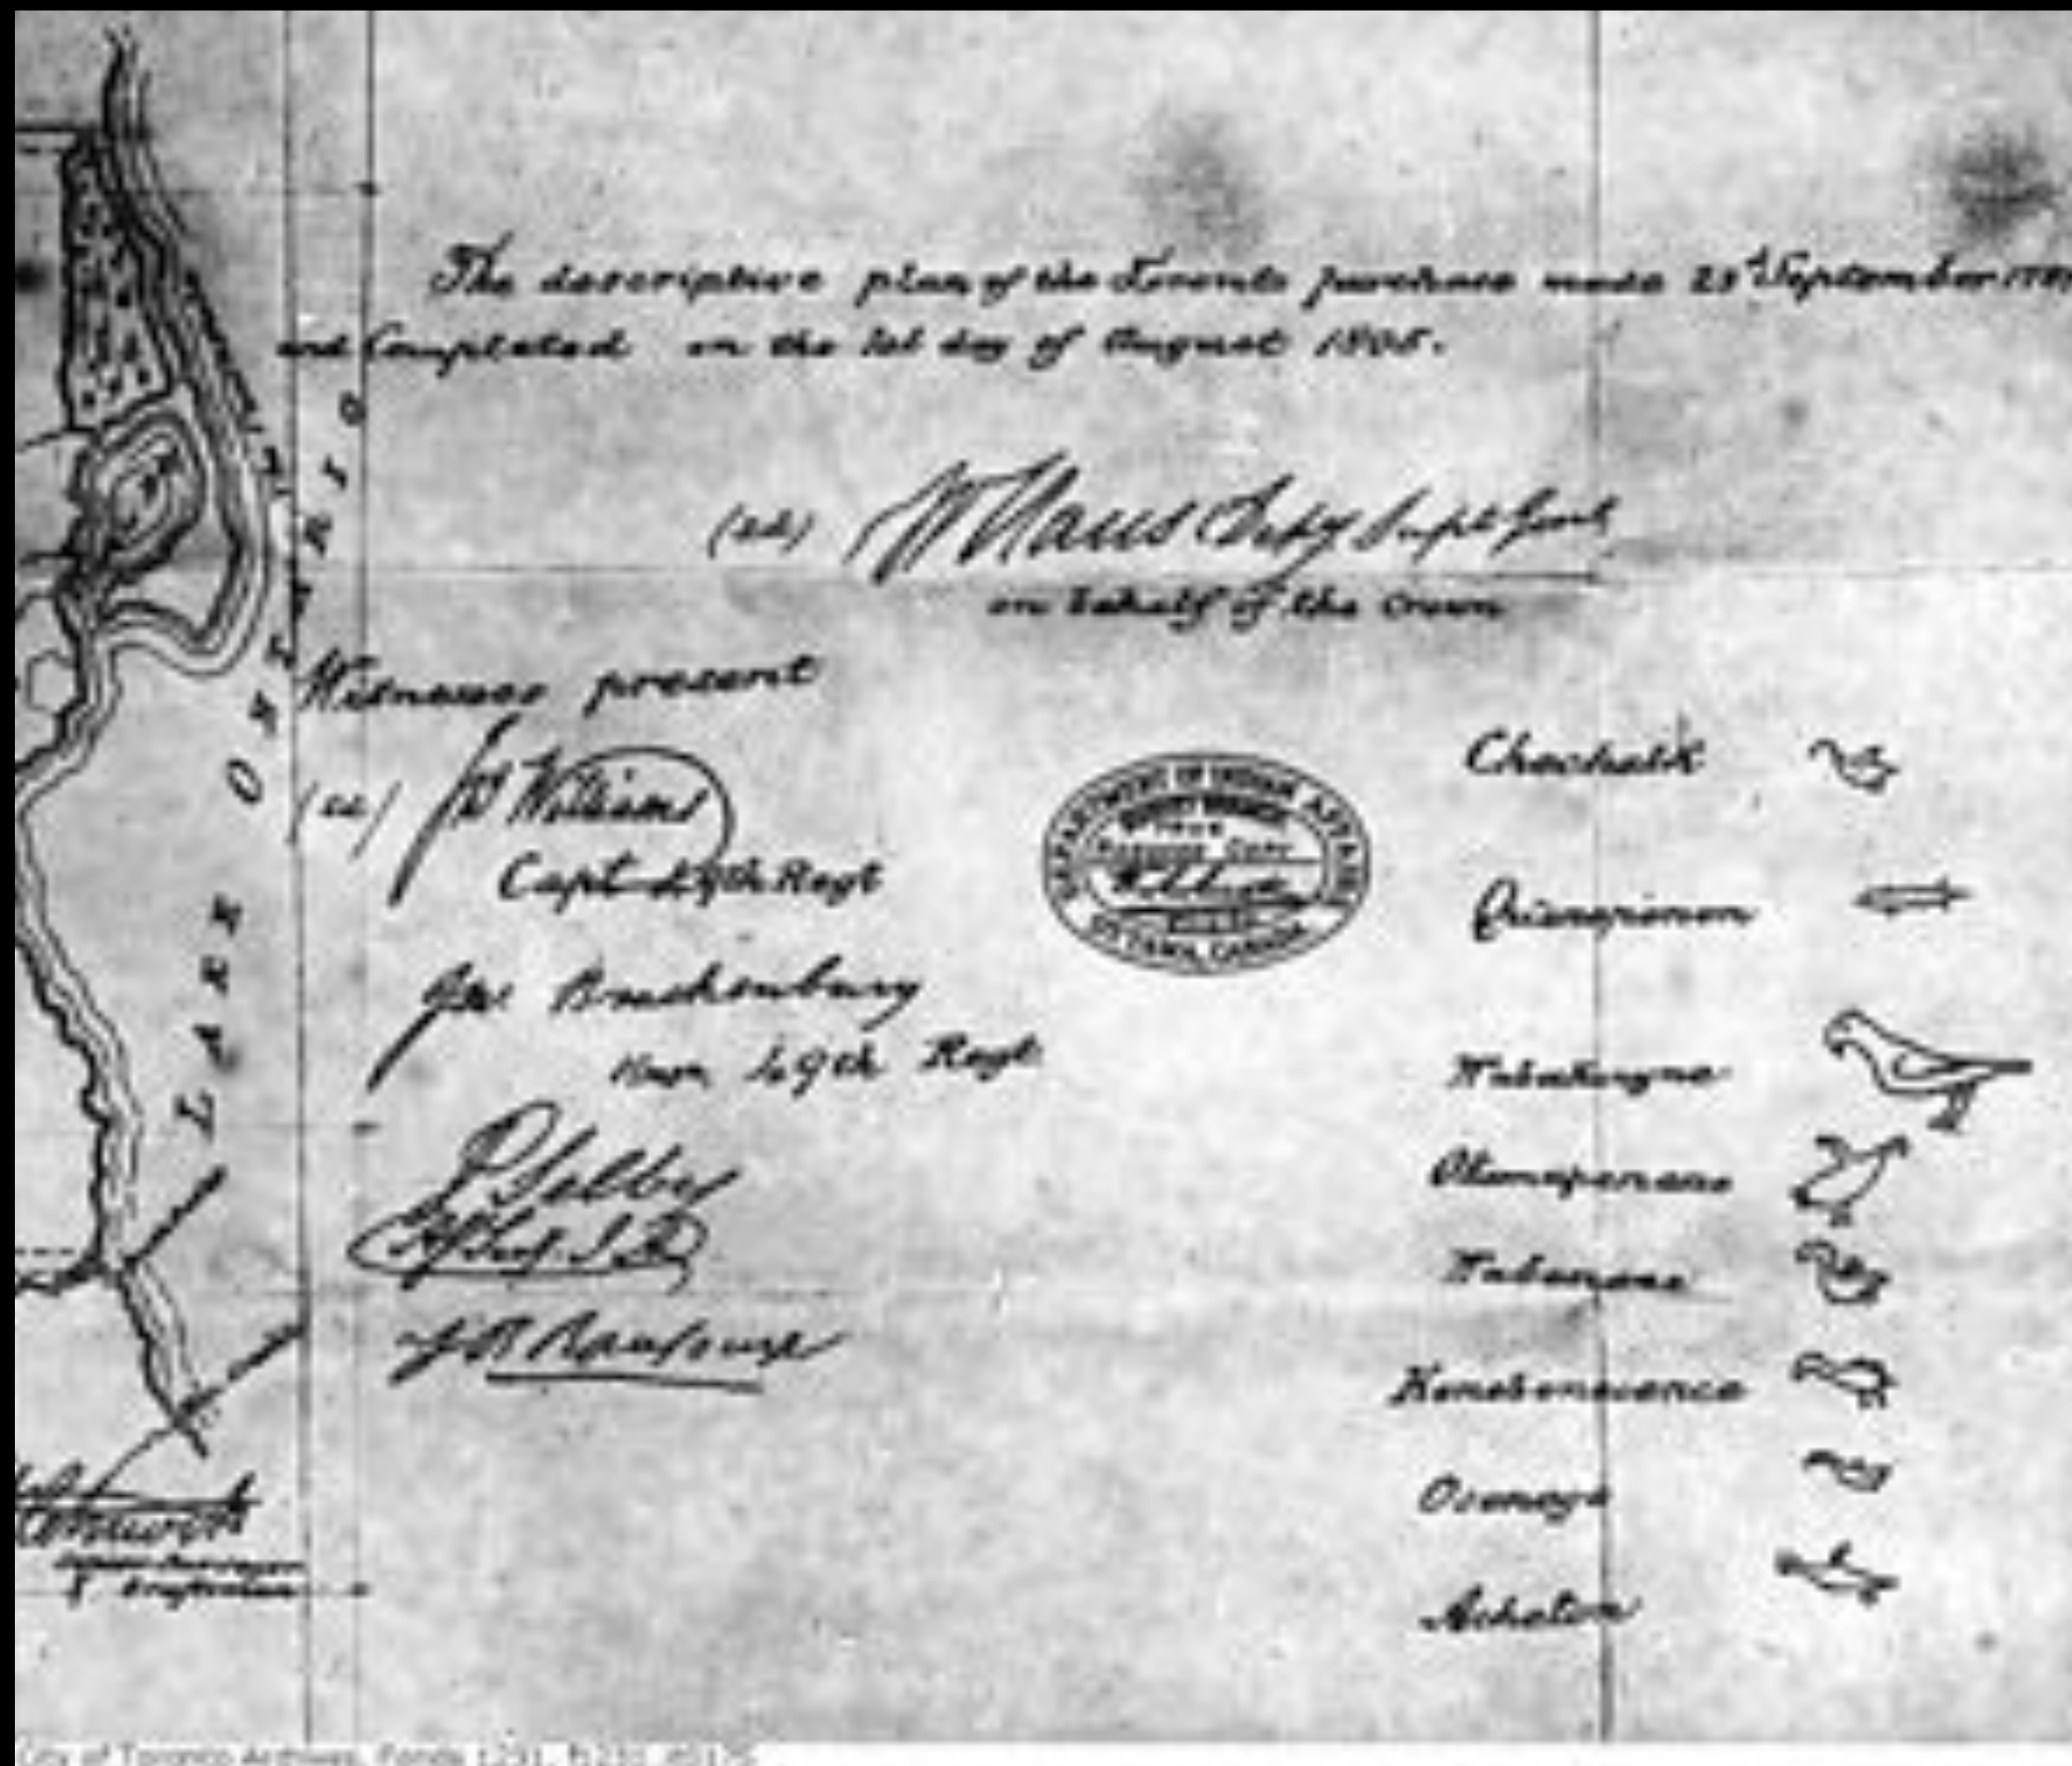 The descriptive plan of the Toronto purchase made 23d September 1787
and Completed on the 1st day of August 1805.
W Claus Depy Supt Genl
on behalf of the Crown
LAKE ONTARIO
Witnesses present
W Williams
Capt 49th Regt
Jno. Brackenbury
49th Regt.
P Selby
J B Rousseaux
DEPARTMENT OF INDIAN AFFAIRS
SURVEY BRANCH
OTTAWA, CANADA
Chechalk
Quinepenon
Wabukanyne
Okemapenesse
Wabenose
Kenebonecence
Osenego
Acheton
& Draftsman
City of Toronto Archives, Fonds 1231,